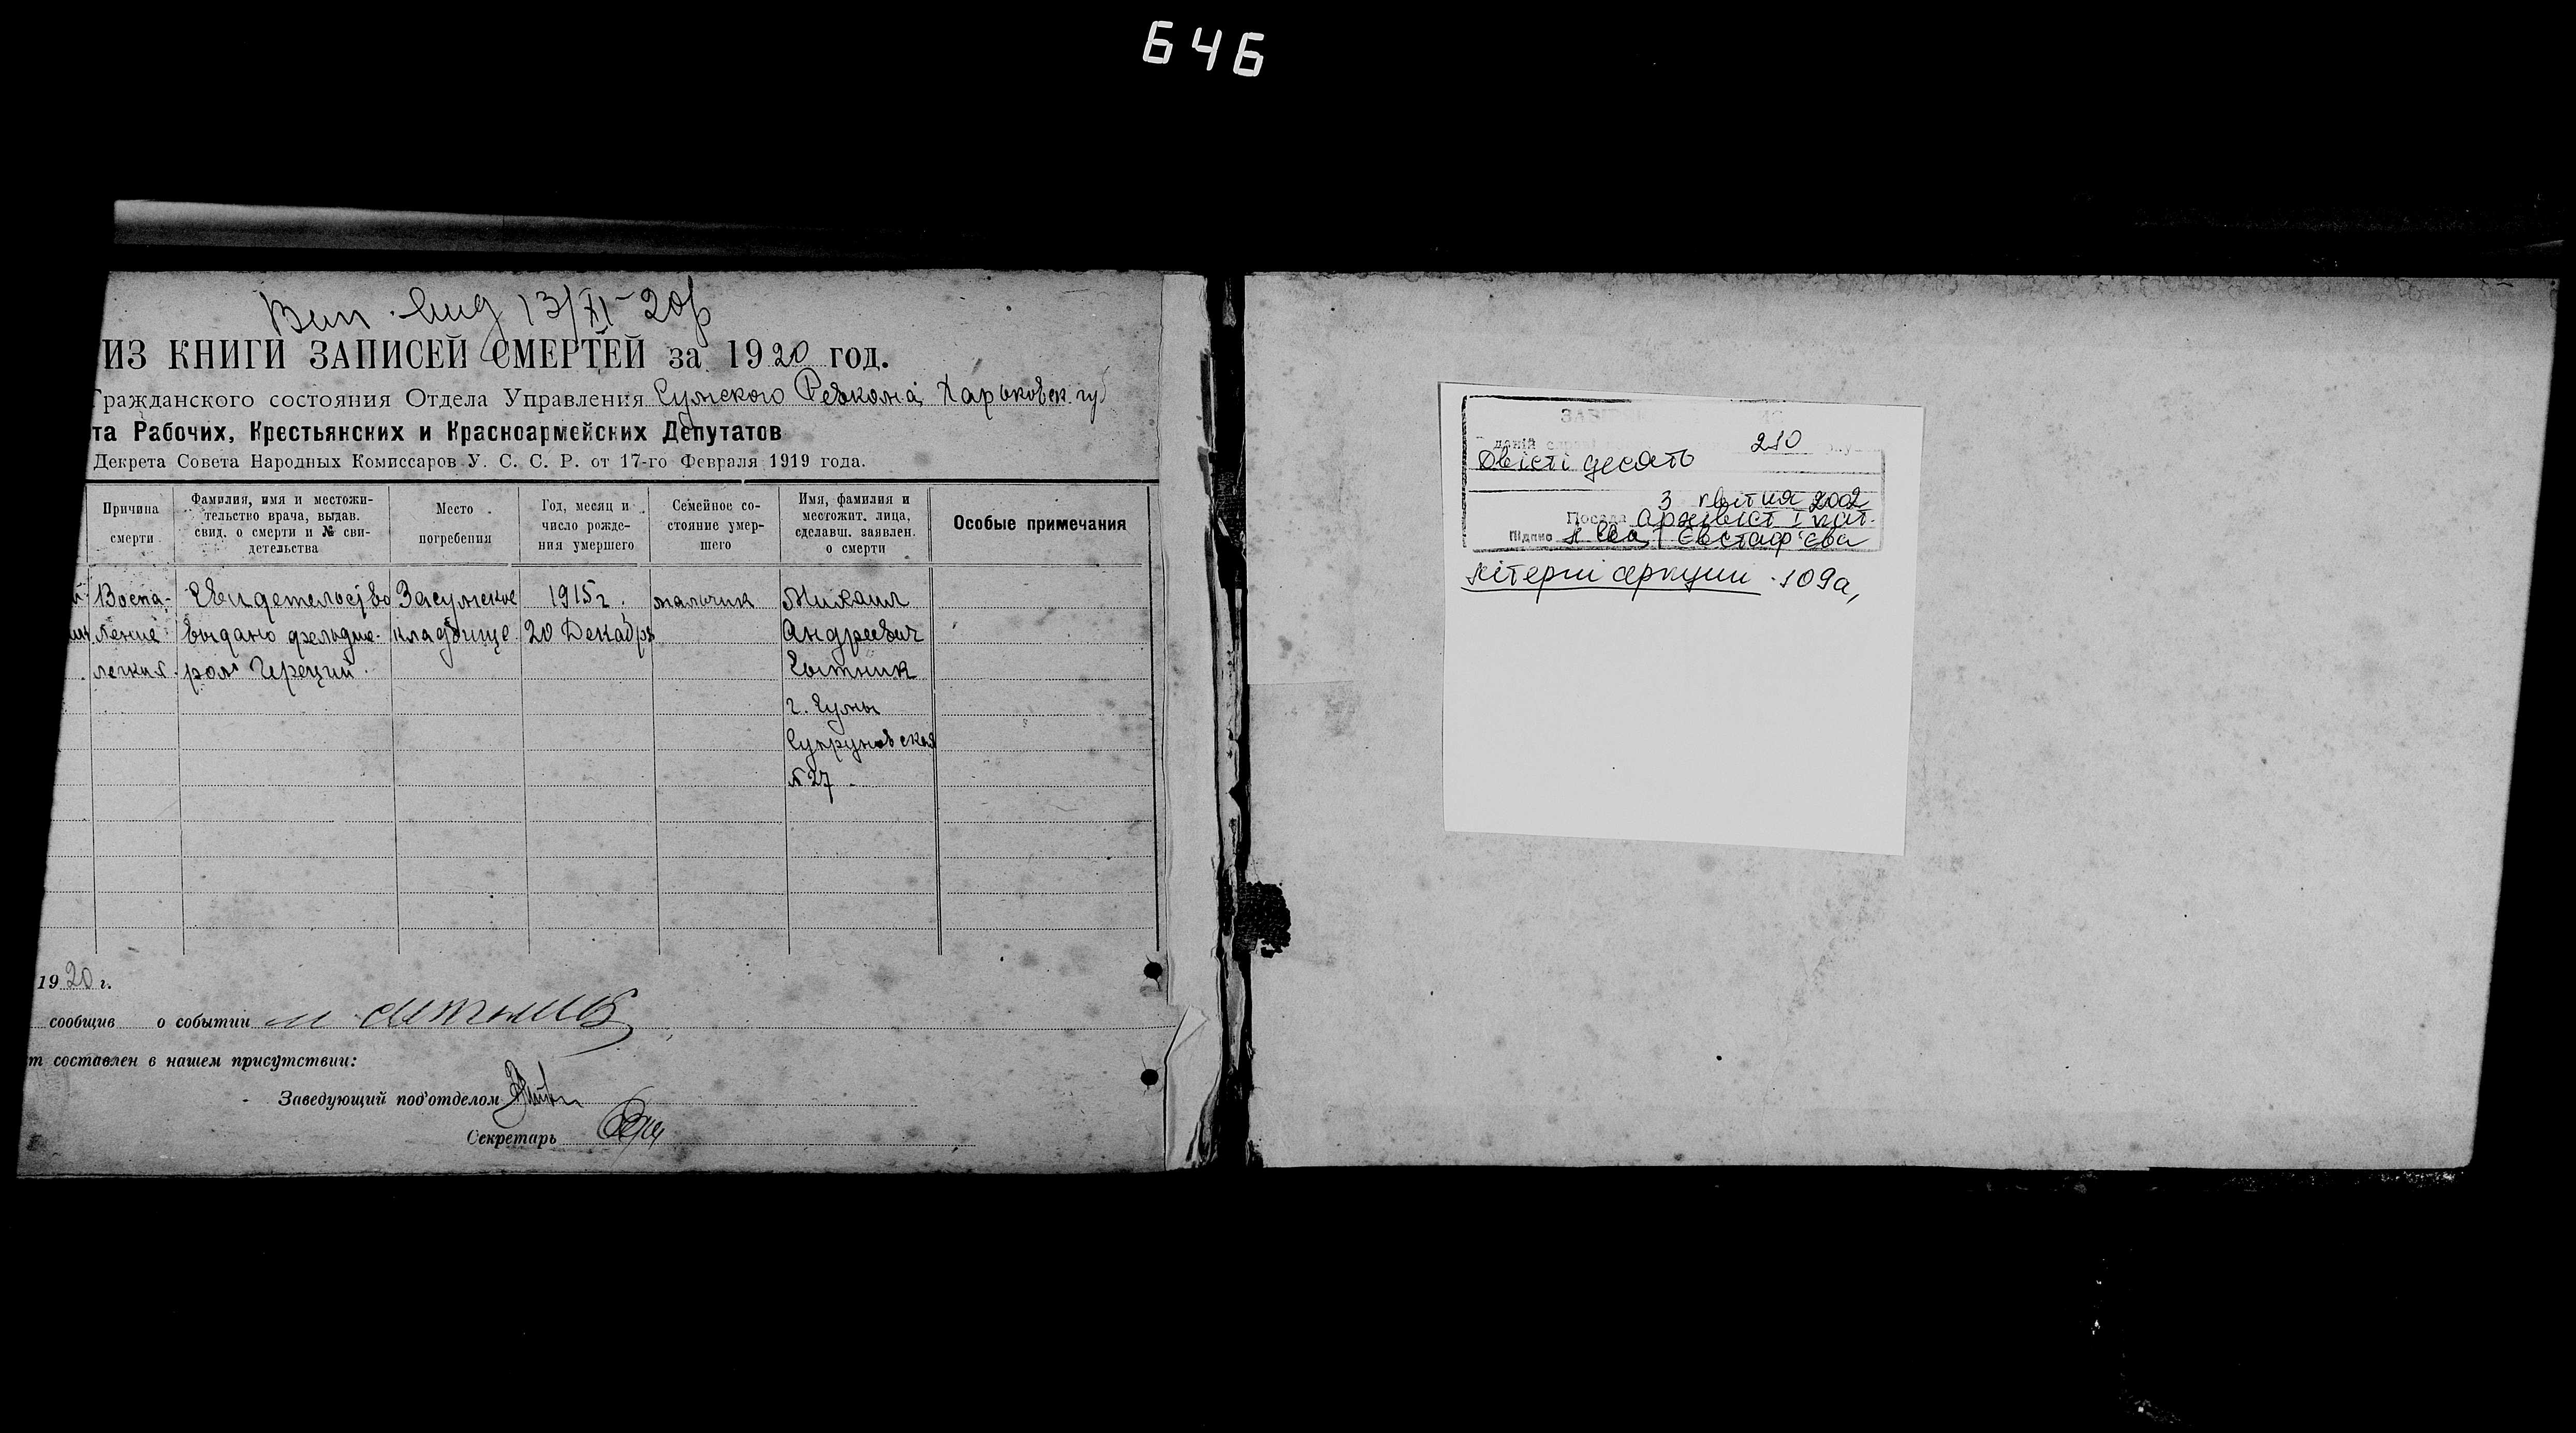 646
13/XI-20
ИЗ КНИГИ ЗАПИСЕЙ СМЕРТЕЙ за 1920 год.
Гражданского состояния Отдела Управления Сумского Ревкома Харьковск. губ
та Рабочих, Крестьянских и Красноармейских Депутатов
Декрета Совета Народных Комиссаров У. С. С. Р. от 17-го Февраля 1919 года.
Причина смерти
Фамилия, имя и местожительство врача, выдав. свид. о смерти и № свидетельства
Место погребения
Год, месяц и число рождения умершего
Семейное состояние умершего
Имя, фамилия и местожит. лица, сделавш. заявлен. о смерти
Особые примечания
Воспа- Свидетельство Засумское 1915 г. мальчик Михаил
ление выдано фельдше- кладбище 20 Декабря Андреевич
легких ром Сытник
г. Сумы
Супруновская
№ 27
1920 г.
сообщив о событии
т составлен в нашем присутствии:
Заведующий под'отделом
Секретарь
даній справі 210
Двісті десять
3 квітня 2002
Посада архівіст I кат.
Підпис Євстаф'єва
літерні аркуши 109а,